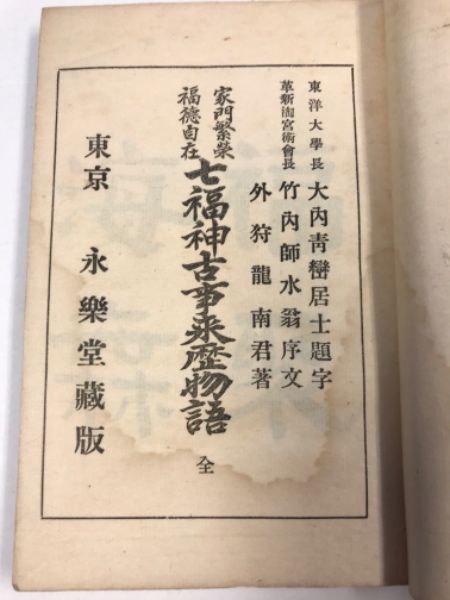 東洋大學長 大内靑巒居士題字
革新淘宮術會長 竹内師水翁序文
外狩龍南君著
家門繁榮
福德自在
七福神古事来歴物語 全
東京 永樂堂藏版